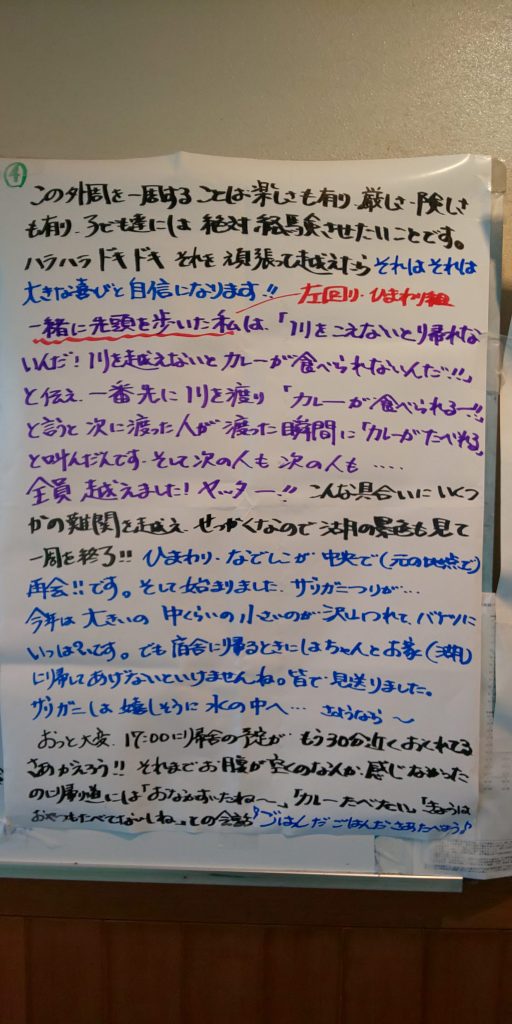 ④
この外周を一周することは楽しさも有り 厳しさ・険しさ
も有り、子ども達には 絶対 経験させたいことです。
ハラハラ ドキドキ それを 頑張って越えたら それはそれは
大きな喜びと 自信になります!!
左回り・ひまわり組
一緒に先頭を歩いた私は、「川をこえないと帰れな
いんだ! 川を越えないと カレーが食べられないんだ!!」
と伝え、一番先に川を渡り 「カレーが食べられるー!!」
と言うと 次に渡った人が 渡った瞬間に「カレーがたべれる」
と叫んだんです。そして次の人も 次の人も ‥‥
全員 越えました! ヤッター!! こんな具合いに いくつ
かの難関を越え、せっかくなので 湖の景色も見て
一周を終了!! ひまわり・なでしこが 中央で(元の地点で)
再会!!です。そして始まりました、ザリガニつりが…
今年は 大きいの 中くらいの 小さいのが 沢山つれて、バケツに
いっぱいです。でも 宿舎に帰るときにはちゃんとお家(湖)
に帰してあげないといけませんね。皆で見送りました。
ザリガニは 嬉しそうに 水の中へ… さようなら 〜
おっと大変、17:00に帰舎の予定が もう30分近くおくれてる
さあかえろう!! それまでお腹が空くのなんか 感じなかった
のに帰り道には「おなかすいたね〜」「カレーたべたい」「きょうは
おやつもたべてないしね」との会話 ♪ごはんだ ごはんだ さあたべよう♪